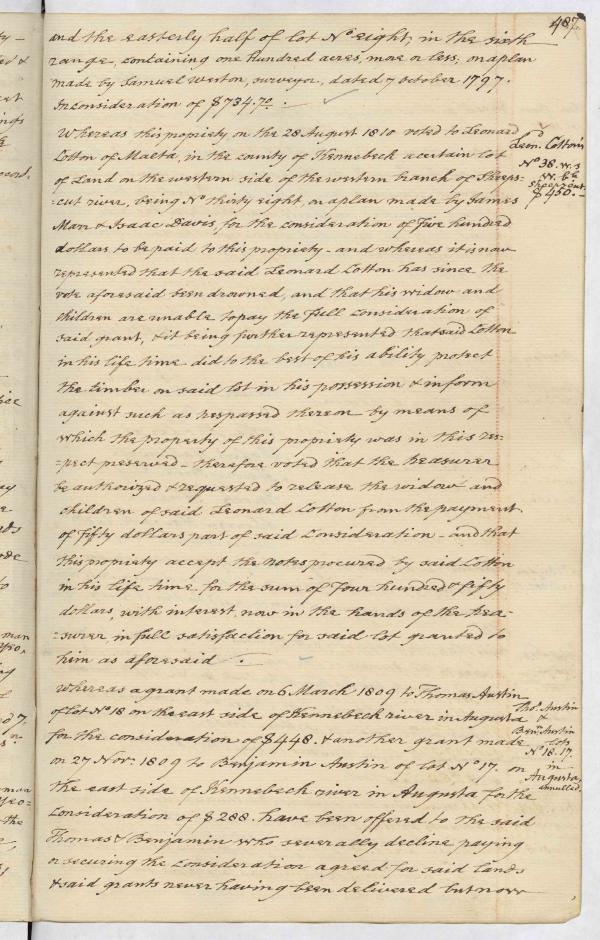 487
and the easterly half of lot No eight, in the sixth
range, containing one hundred acres, more or less, on a plan
made by Samuel Weston, surveyor, dated 7 October 1797.
In consideration of $734.70.
Whereas this propriety on the 28 August 1810 voted to Leonard
Cotton of Malta, in the county of Kennebeck a certain lot
of Land on the western side of the western branch of Sheeps=
=cut river, being No thirty eight, on a plan made by James
Marr & Isaac Davis, for the consideration of Five hundred
dollars to be paid to this propriety - and whereas it is now
represented that the said Leonard Cotton has since the
vote aforesaid been drowned, and that his widow and
children are unable to pay the full consideration of
said grant, & it being further represented that said Cotton
in his life time did to the best of his ability protect
the timber on said lot in his possession & inform
against such as trespassed thereon by means of
which the property of this propriety was in this res=
=pect preserved - therefore voted that the treasurer
be authorized & requested to release the widow and
children of said Leonard Cotton from the payment
of fifty dollars part of said consideration - and that
this propriety accept the notes procured by said Cotton
in his life time for the sum of Four hundred & fifty
dollars, with interest, now in the hands of the trea=
=surer, in full satisfaction for said lot granted to
him as aforesaid.
Whereas a grant made on 6 March 1809 to Thomas Austin
of lot No 18 on the east side of Kennebeck river in Augusta
for the consideration of $448. & another grant made
on 27 Novr. 1809 to Benjamin Austin of lot No 17. on
the east side of Kennebeck river in Augusta for the
consideration of $288. have been offered to the said
Thomas & Benjamin who severally decline paying
or securing the consideration agreed for said lands
& said grants never having been delivered but now
Leond. Cotton's
No 38. W. S
W. bh
Sheepscut.
$450.
Thos. Austin
&
Benjn. Austin
lots
No 18. 17.
in
Augusta,
annulled.